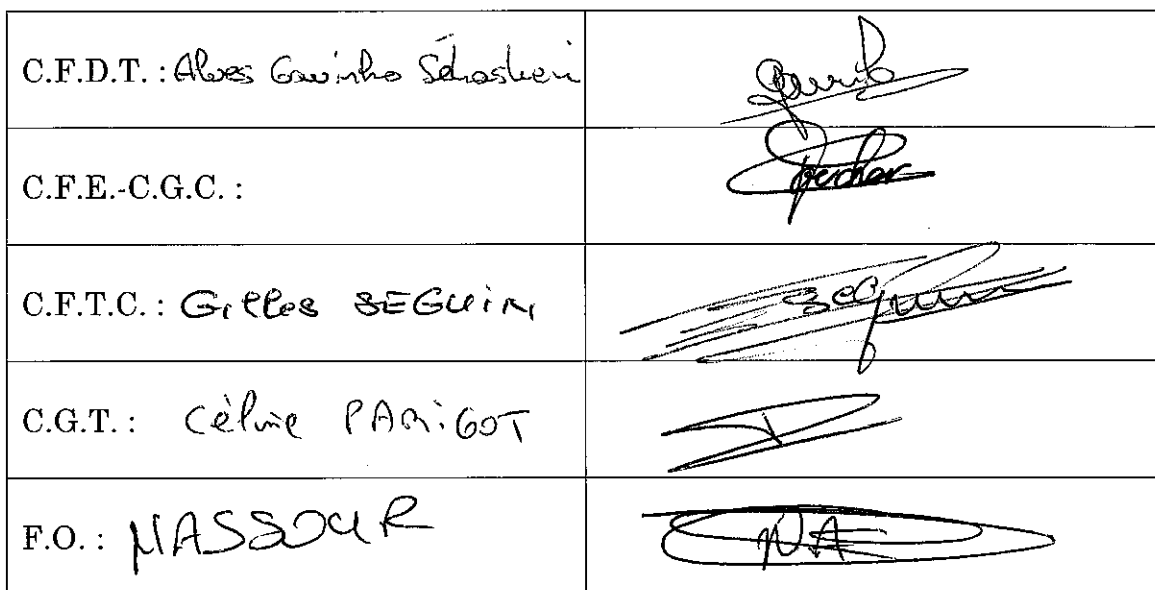 C.F.D.T. : Alves Gavinho Sébastien
C.F.E.-C.G.C. :
C.F.T.C. : Gilles SEGUIN
C.G.T. : Céline PARIGOT
F.O. : NASSOUR